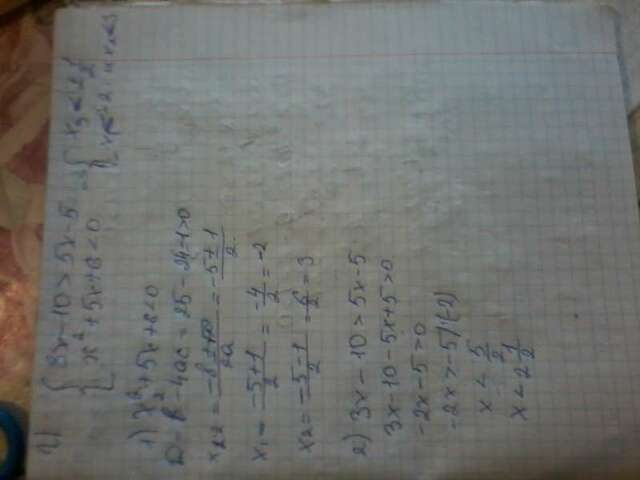 { 3x-10>5x-5
{ x²+5x+6<0
1) x²+5x+6<0
D=b²-4ac=25-24=1>0
= -5±1/2
x₁= -5+1/2 = -4/2 = -2
x₂= -5-1/2 = 6/2 = 3
2) 3x-10>5x-5
3x-10-5x+5>0
-2x-5>0
-2x>5/(-2)
x<5/2
x<2 1/2